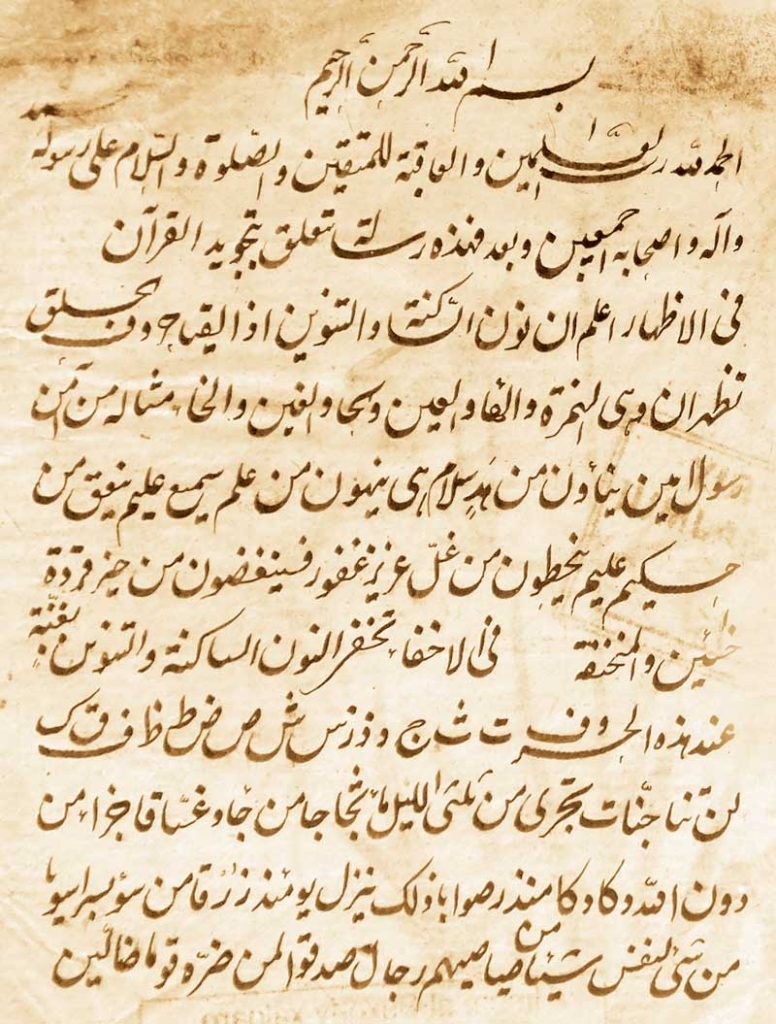 بسم الله الرحمن الرحيم
الحمد لله رب العلمين والعاقبة للمتقين والصلوة والسلام على رسوله
وآله واصحابه اجمعين وبعد فهذه رسالة تتعلق بتجويد القرآن
فى الاظهار اعلم ان نون الساكنة والتنوين اذا لقيا حروف الحلق
تظهران وهى الهمزة والهاء والعين والحاء والغين والخاء مثاله من آمن
رسول امين ينأون من هد سلام هى ينهون من علم سميع عليم ينعق من
حكيم عليم ينحطون من غل عزيز غفور فسينغضون من خير قردة
خاسئين والمنخنقة فى الاخفاء تخفى النون الساكنة والتنوين بغنة
عند هذه الحروف ت ث ج د ذ ز س ش ص ض ط ظ ف ق ك
لن تنا جنات تجرى من ثلثى الليل ماء ثجاجا من جاء وغساقا جزاء من
دون الله وكاد دكا منذر صوابا ذلك ينزل يومئذ زرقا من سوء بشرا سويا
من شئ لنفس شيئا من صياصيهم رجال صدقوا لمن ضره قوما ضالين